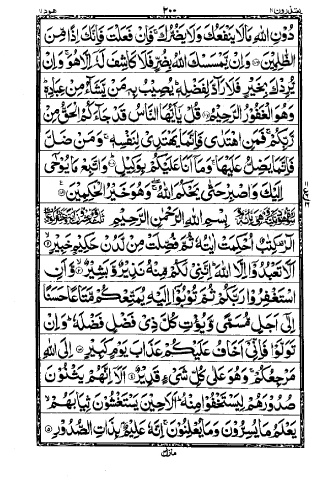 يعتذرون ١١ ٢٠٠ هود ١١
دُوْنِ اللّٰهِ مَا لَا يَنْفَعُكَ وَلَا يَضُرُّكَ ۚ فَاِنْ فَعَلْتَ فَاِنَّكَ اِذًا مِّنَ
الظّٰلِمِيْنَ ۝ وَاِنْ يَّمْسَسْكَ اللّٰهُ بِضُرٍّ فَلَا كَاشِفَ لَهٗٓ اِلَّا هُوَ ۚ وَاِنْ
يُّرِدْكَ بِخَيْرٍ فَلَا رَآدَّ لِفَضْلِهٖ ؕ يُصِيْبُ بِهٖ مَنْ يَّشَآءُ مِنْ عِبَادِهٖ ؕ
وَهُوَ الْغَفُوْرُ الرَّحِيْمُ ۝ قُلْ يٰٓاَيُّهَا النَّاسُ قَدْ جَآءَكُمُ الْحَقُّ مِنْ
رَّبِّكُمْ ۚ فَمَنِ اهْتَدٰى فَاِنَّمَا يَهْتَدِيْ لِنَفْسِهٖ ۚ وَمَنْ ضَلَّ
فَاِنَّمَا يَضِلُّ عَلَيْهَا ۚ وَمَآ اَنَا عَلَيْكُمْ بِوَكِيْلٍ ۝ وَاتَّبِعْ مَا يُوْحٰٓى
اِلَيْكَ وَاصْبِرْ حَتّٰى يَحْكُمَ اللّٰهُ ۚ وَهُوَ خَيْرُ الْحٰكِمِيْنَ ۝
بِسْمِ اللّٰهِ الرَّحْمٰنِ الرَّحِيْمِ
الٓرٰ ۟ كِتٰبٌ اُحْكِمَتْ اٰيٰتُهٗ ثُمَّ فُصِّلَتْ مِنْ لَّدُنْ حَكِيْمٍ خَبِيْرٍ ۝
اَلَّا تَعْبُدُوْٓا اِلَّا اللّٰهَ ؕ اِنَّنِيْ لَكُمْ مِّنْهُ نَذِيْرٌ وَّبَشِيْرٌ ۝ وَّاَنِ
اسْتَغْفِرُوْا رَبَّكُمْ ثُمَّ تُوْبُوْٓا اِلَيْهِ يُمَتِّعْكُمْ مَّتَاعًا حَسَنًا
اِلٰٓى اَجَلٍ مُّسَمًّى وَّيُؤْتِ كُلَّ ذِيْ فَضْلٍ فَضْلَهٗ ؕ وَاِنْ
تَوَلَّوْا فَاِنِّيْٓ اَخَافُ عَلَيْكُمْ عَذَابَ يَوْمٍ كَبِيْرٍ ۝ اِلَى اللّٰهِ
مَرْجِعُكُمْ ۚ وَهُوَ عَلٰى كُلِّ شَيْءٍ قَدِيْرٌ ۝ اَلَآ اِنَّهُمْ يَثْنُوْنَ
صُدُوْرَهُمْ لِيَسْتَخْفُوْا مِنْهُ ؕ اَلَا حِيْنَ يَسْتَغْشُوْنَ ثِيَابَهُمْ ۙ
يَعْلَمُ مَا يُسِرُّوْنَ وَمَا يُعْلِنُوْنَ ۚ اِنَّهٗ عَلِيْمٌ ۢ بِذَاتِ الصُّدُوْرِ ۝
منزل ٣